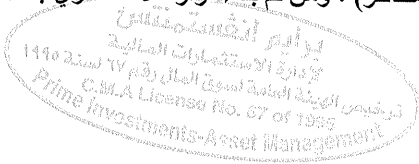 برايم أنفستمنتس
لإدارة الاستثمارات المالية
ترخيص الهيئة العامة لسوق المال رقم ٦٧ لسنة ١٩٩٥
C.M.A License No. 67 of 1995
Prime Investments-Asset Management